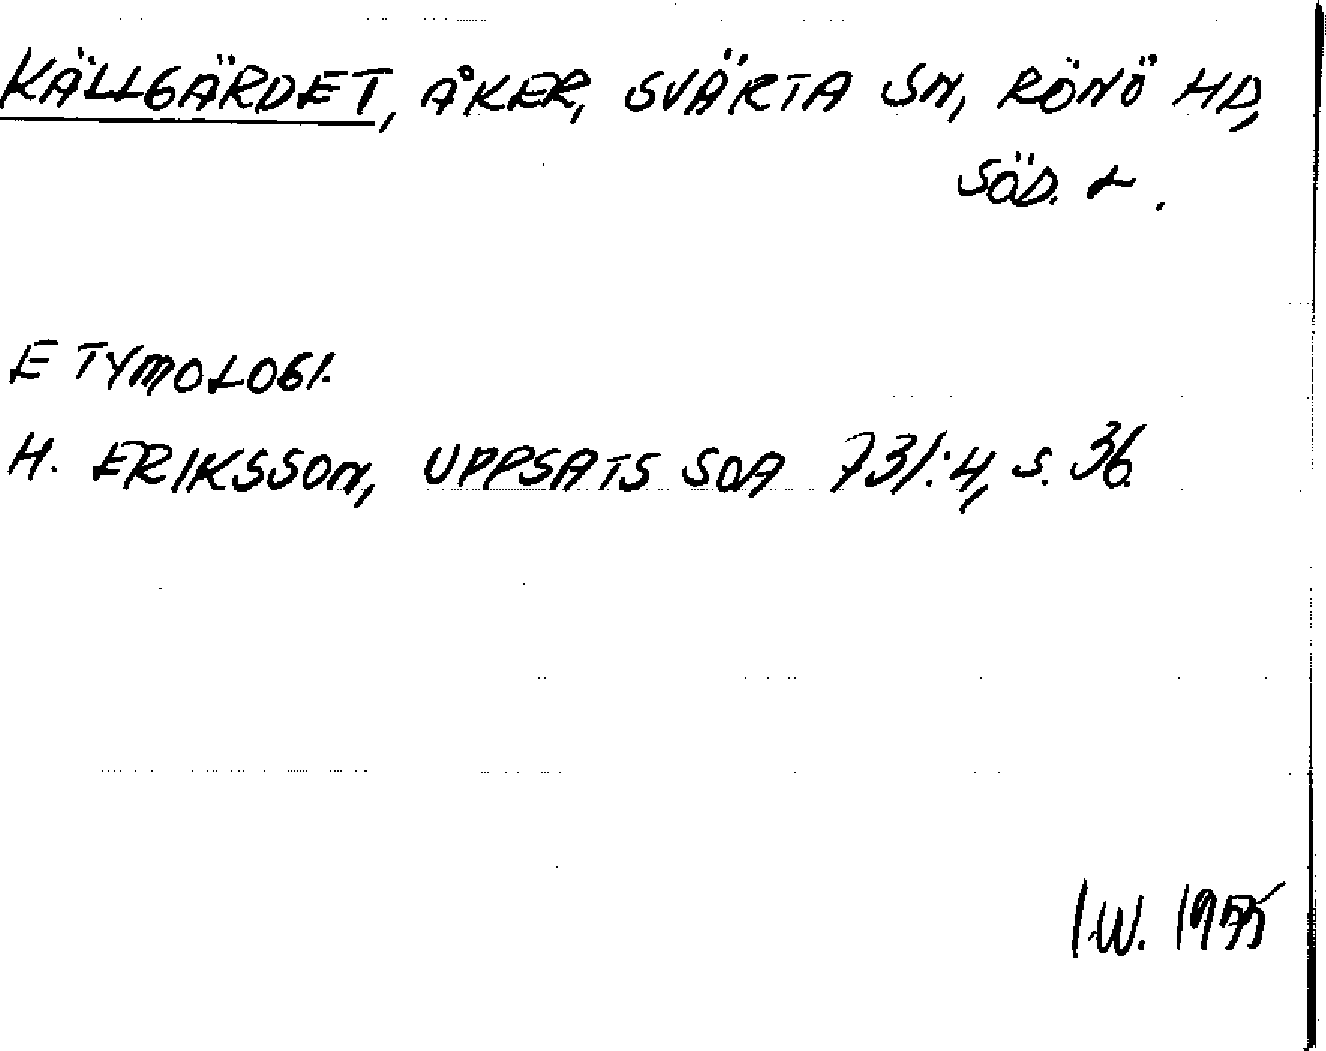 KÄLLGÄRDET, ÅKER, SVÄRTA SN, RÖNÖ HD,
SÖD. L.
ETYMOLOGI.
H. ERIKSSON, UPPSATS SOA 731:4, s. 36.
I.W.